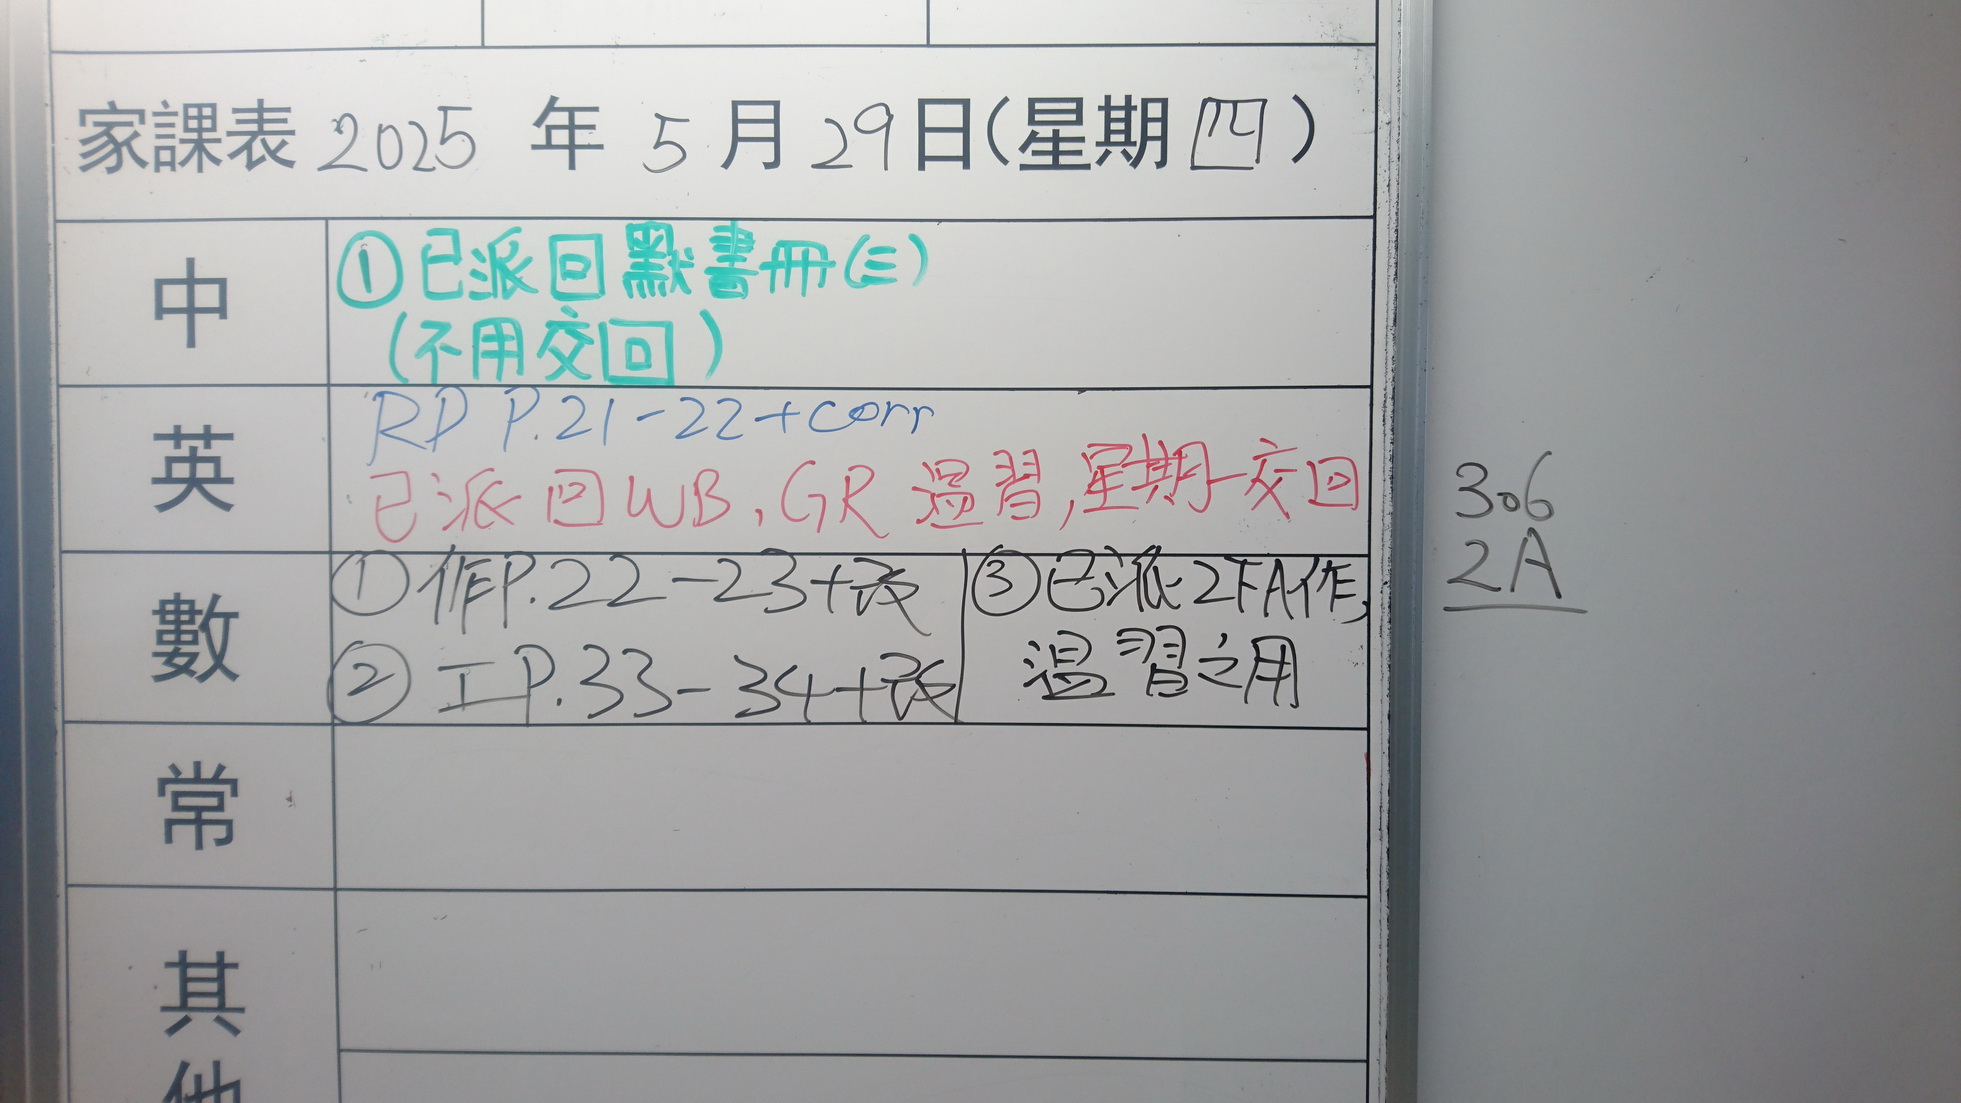 家課表 2025 年 5 月 29 日(星期四)
中
①已派回默書冊(三)
(不用交回)
英
RP P.21-22+corr
已派回WB, GR 溫習,星期一交回
數
①作P.22-23+改
②工P.33-34+改
③已派2FA作,
溫習之用
常
其
他
306
2A